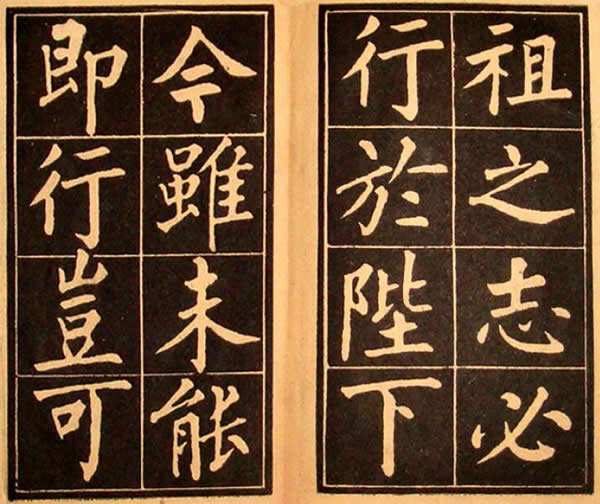 祖之志必
行於陛下
今雖未能
即行豈可